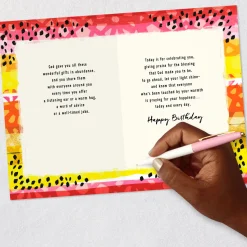 God gave you all those
wonderful gifts in abundance,
and you share them
with everyone around you
every time you offer
a listening ear or a warm hug,
a word of advice
or a well-timed joke.
Today is for celebrating you,
giving praise for the blessing
that God made you to be,
to go ahead, let your light shine—
and know that everyone
who's been touched by your warmth
is praying for your happiness...
today and every day.
Happy Birthday